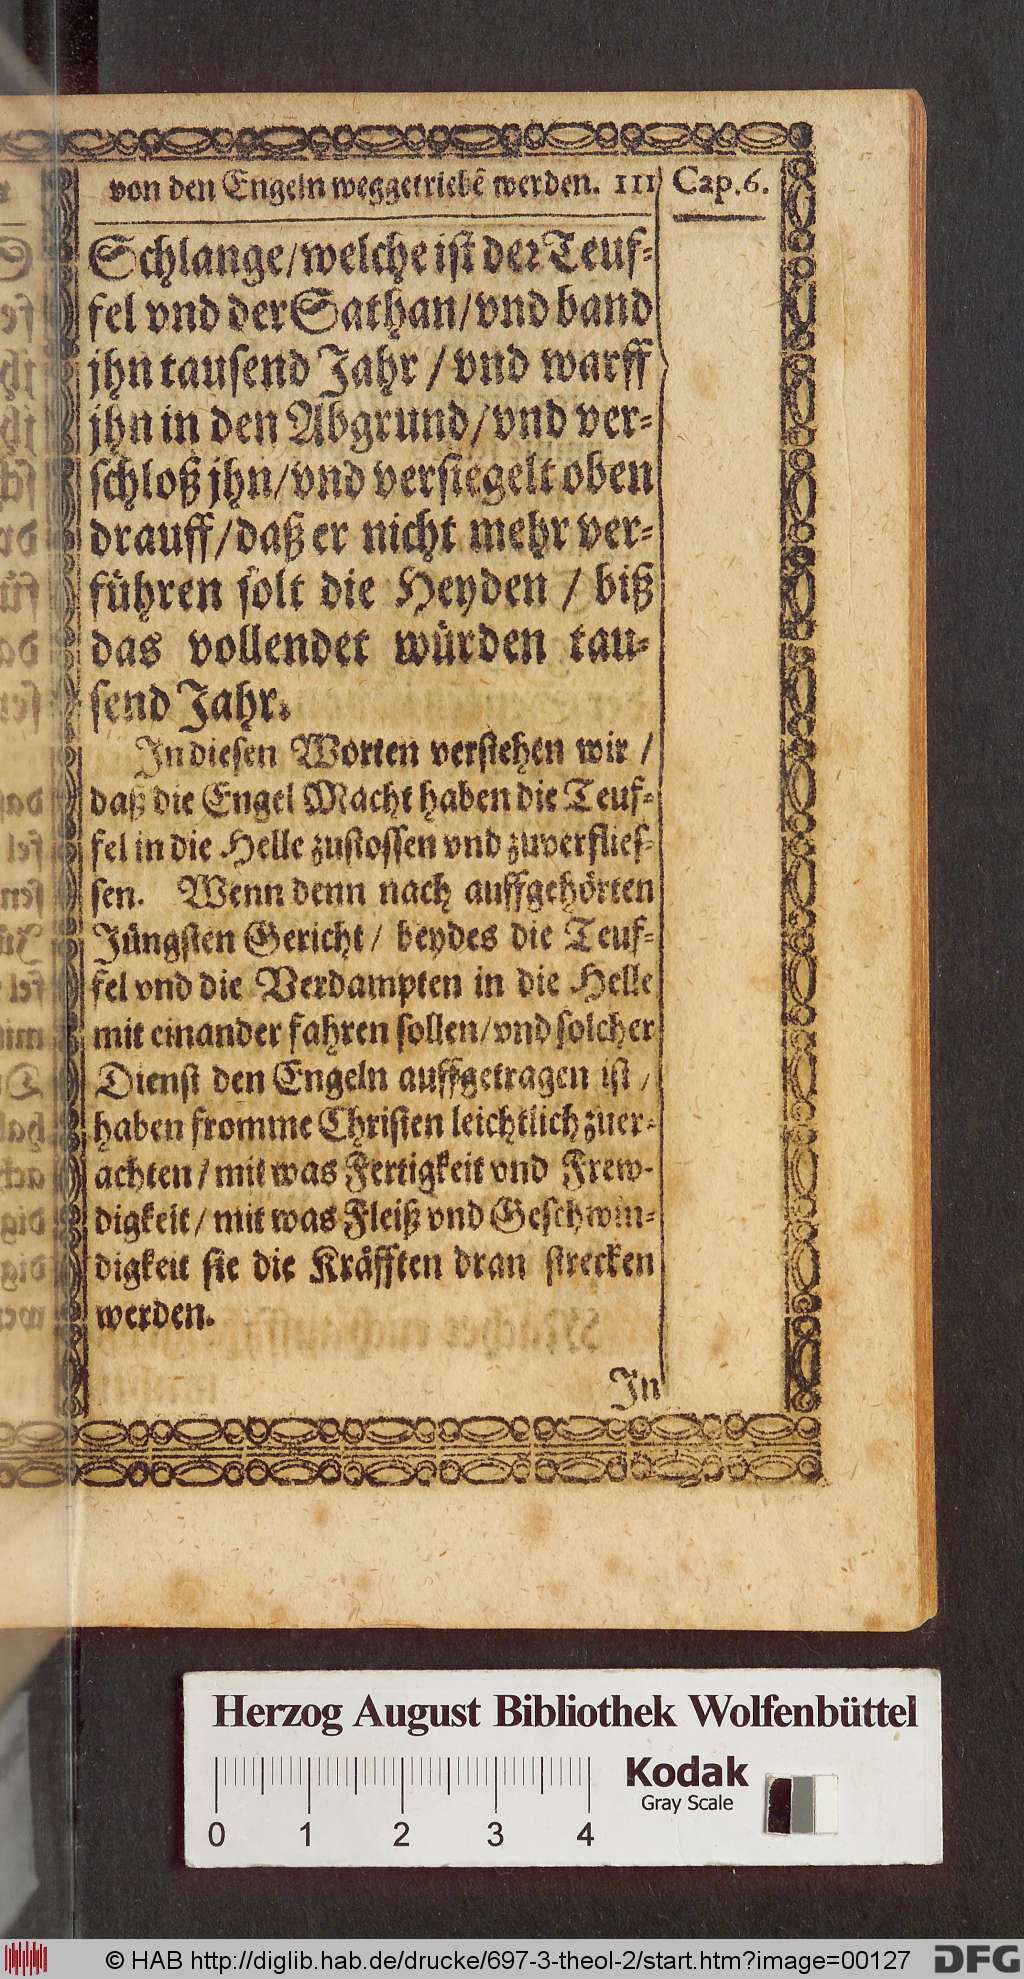 von den Engeln weggetriebẽ werden. 111 Cap. 6.
Schlange/welche ist der Teuf-
fel vnd der Sathan/vnd band
jhn tausend Jahr / vnd warff
jhn in den Abgrund/vnd ver-
schloß jhn/vnd versiegelt oben
drauff/daß er nicht mehr ver-
führen solt die Heyden / biß
das vollendet würden tau-
send Jahr.
In diesen Worten verstehen wir /
daß die Engel Macht haben die Teuf-
fel in die Helle zustossen vnd zuverslies-
sen. Wenn denn nach auffgehörten
Jüngsten Gericht / beydes die Teuf-
fel vnd die Verdampten in die Helle
mit einander fahren sollen/vnd solcher
Dienst den Engeln auffgetragen ist /
haben fromme Christen leichtlich zuer-
achten / mit was Fertigkeit vnd Frew-
digkeit / mit was Fleiß vnd Geschwin-
digkeit sie die Kräfften dran strecken
werden.
In
Herzog August Bibliothek Wolfenbüttel
Kodak
Gray Scale
0 1 2 3 4
© HAB http://diglib.hab.de/drucke/697-3-theol-2/start.htm?image=00127
DFG